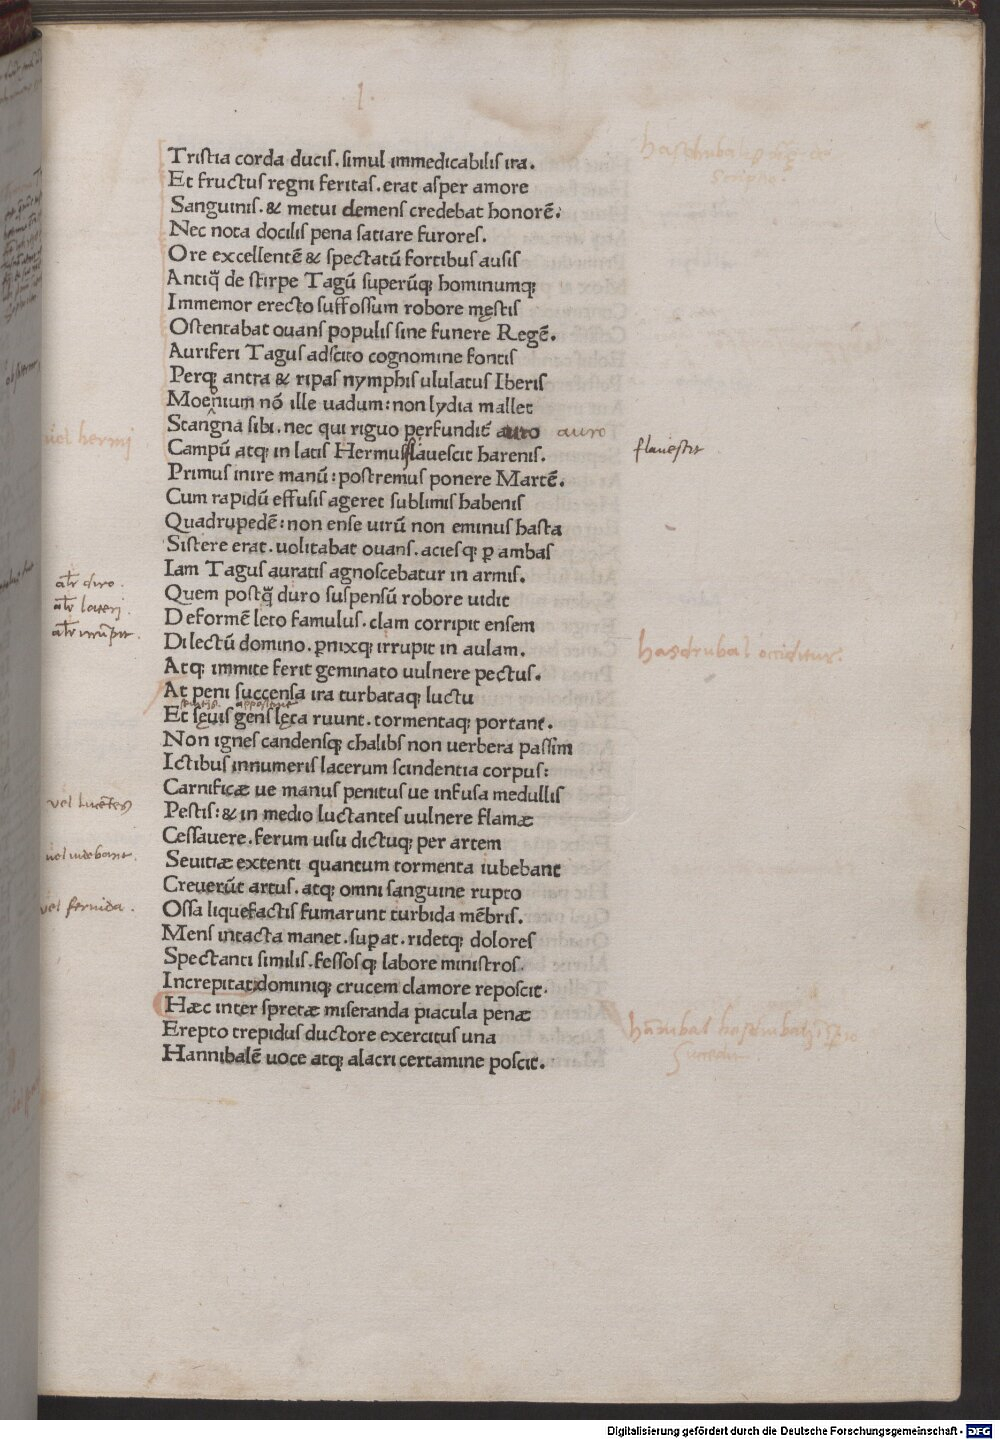 I.
Tristia corda ducis. simul immedicabilis ira.
Et fructus regni feritas. erat asper amore
Sanguinis. & metui demens credebat honorẽ.
Nec nota docilis pena satiare furores.
Ore excellentẽ & spectatũ fortibus ausis
Antiq̃ de stirpe Tagũ superũq; hominumq;
Immemor erecto suffossum robore męstis
Ostentabat ouans populis sine funere Regẽ.
Auriferi Tagus adscito cognomine fontis
Perq; antra & ripas nymphis ululatus Iberis
Moenium nõ ille uadum: non lydia mallet
Stangna sibi. nec qui riguo perfundit̃ auro auro
uel hermi
Campũ atq; in latis Hermus flauescit harenis.
flauescit
Primus inire manũ: postremus ponere Martẽ.
Cum rapidũ effusis ageret sublimis habenis
Quadrupedẽ: non ense uirũ non eminus hasta
Sistere erat. uolitabat ouans. aciesq; ꝑ ambas
Iam Tagus auratis agnoscebatur in armis.
alr̃ diro.
Quem postq̃ duro suspensũ robore uidit
alr̃ lateri.
Deformẽ leto famulus. clam corripit ensem
alr̃ irrũpit.
Dilectũ domino. ꝑnixq; irrupit in aulam.
hasdrubal occiditur.
Atq; immite ferit geminato uulnere pectus.
At peni succensa ira turbataq; luctu
Et sęuis gens lęta ruunt. tormentaq; portant.
Non ignes candensq; chalibs non uerbera passim
Ictibus innumeris lacerum scindentia corpus:
Carnificæ ue manus penitus ue infusa medullis
vel lucẽtes
Pestis: & in medio luctantes uulnere flamæ
Cessauere. ferum uisu dictuq; per artem
vel iubebant.
Seuitiæ extenti quantum tormenta iubebant
Creuerũt artus. atq; omni sanguine rupto
vel feruida.
Ossa liquefactis fumarunt turbida mẽbris.
Mens intacta manet. suꝑat. ridetq; dolores
Spectanti similis. fessosq; labore ministros.
Increpitat: dominiq; crucem clamore reposcit.
Hæc inter spretæ miseranda piacula penæ
Erepto trepidus ductore exercitus una
Hannibalẽ uoce atq; alacri certamine poscit.
Digitalisierung gefördert durch die Deutsche Forschungsgemeinschaft - DFG